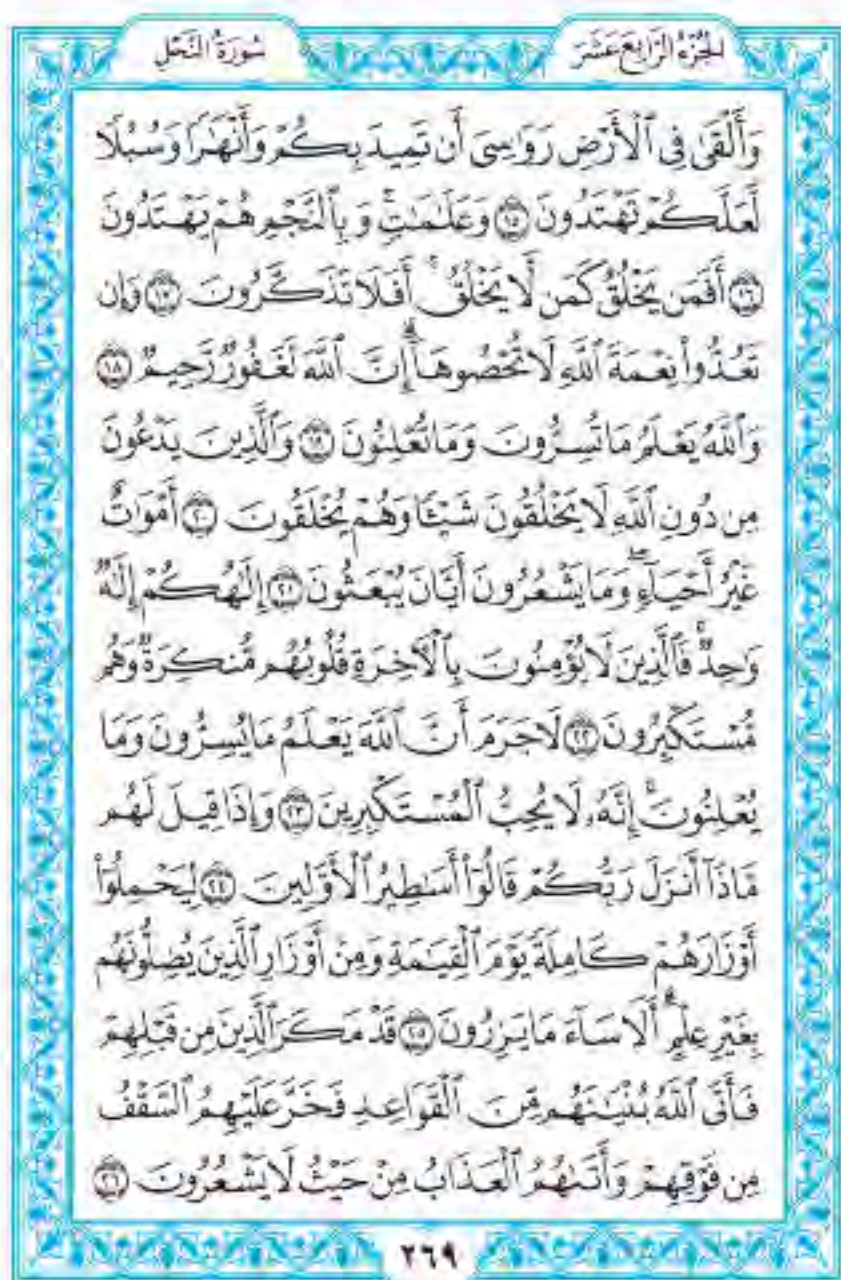 الجُزْءُ الرَّابِعَ عَشَرَ
سُورَةُ النَّحْلِ
وَأَلْقَىٰ فِي ٱلْأَرْضِ رَوَٰسِيَ أَن تَمِيدَ بِكُمْ وَأَنْهَٰرًا وَسُبُلًا
لَّعَلَّكُمْ تَهْتَدُونَ ۝١٥ وَعَلَٰمَٰتٍۚ وَبِٱلنَّجْمِ هُمْ يَهْتَدُونَ
۝١٦ أَفَمَن يَخْلُقُ كَمَن لَّا يَخْلُقُۗ أَفَلَا تَذَكَّرُونَ ۝١٧ وَإِن
تَعُدُّوا۟ نِعْمَةَ ٱللَّهِ لَا تُحْصُوهَآۗ إِنَّ ٱللَّهَ لَغَفُورٌ رَّحِيمٌ ۝١٨
وَٱللَّهُ يَعْلَمُ مَا تُسِرُّونَ وَمَا تُعْلِنُونَ ۝١٩ وَٱلَّذِينَ يَدْعُونَ
مِن دُونِ ٱللَّهِ لَا يَخْلُقُونَ شَيْـًٔا وَهُمْ يُخْلَقُونَ ۝٢٠ أَمْوَٰتٌ
غَيْرُ أَحْيَآءٍۖ وَمَا يَشْعُرُونَ أَيَّانَ يُبْعَثُونَ ۝٢١ إِلَٰهُكُمْ إِلَٰهٌ
وَٰحِدٌۚ فَٱلَّذِينَ لَا يُؤْمِنُونَ بِٱلْءَاخِرَةِ قُلُوبُهُم مُّنكِرَةٌ وَهُم
مُّسْتَكْبِرُونَ ۝٢٢ لَا جَرَمَ أَنَّ ٱللَّهَ يَعْلَمُ مَا يُسِرُّونَ وَمَا
يُعْلِنُونَۚ إِنَّهُۥ لَا يُحِبُّ ٱلْمُسْتَكْبِرِينَ ۝٢٣ وَإِذَا قِيلَ لَهُم
مَّاذَآ أَنزَلَ رَبُّكُمْ قَالُوٓا۟ أَسَٰطِيرُ ٱلْأَوَّلِينَ ۝٢٤ لِيَحْمِلُوٓا۟
أَوْزَارَهُمْ كَامِلَةً يَوْمَ ٱلْقِيَٰمَةِ وَمِنْ أَوْزَارِ ٱلَّذِينَ يُضِلُّونَهُم
بِغَيْرِ عِلْمٍۗ أَلَا سَآءَ مَا يَزِرُونَ ۝٢٥ قَدْ مَكَرَ ٱلَّذِينَ مِن قَبْلِهِمْ
فَأَتَى ٱللَّهُ بُنْيَٰنَهُم مِّنَ ٱلْقَوَاعِدِ فَخَرَّ عَلَيْهِمُ ٱلسَّقْفُ
مِن فَوْقِهِمْ وَأَتَىٰهُمُ ٱلْعَذَابُ مِنْ حَيْثُ لَا يَشْعُرُونَ ۝٢٦
٢٦٩